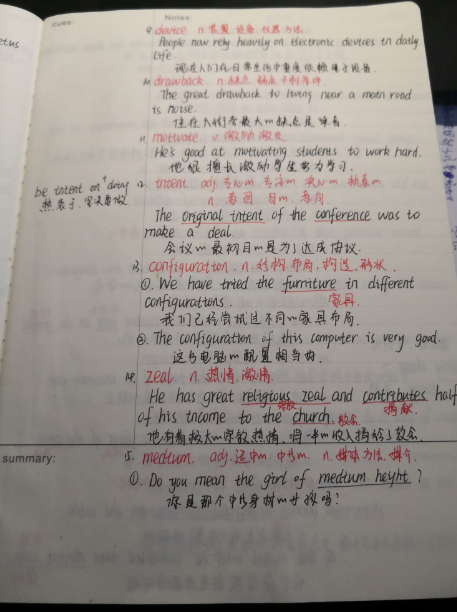 cues:
Notes:
9. device n. 装置. 设备. 仪器 方法.
People now rely heavily on electronic devices in daily
life.
现在人们在日常生活中重度依赖电子设备.
10. drawback n. 缺点 不利条件
The great drawback to living near a main road
is noise.
住在大街旁最大的缺点是噪音.
11. motivate v. 激励 激发
He's good at motivating students to work hard.
他很擅长激励学生努力学习.
be intent on + doing
热衷于.
12. intent adj. 专心的 专注的
n. 意图 目的. 意向
The original intent of the conference was to
make a deal.
会议的最初目的是为了达成协议.
13. configuration. n. 结构. 布局. 构造. 形状.
①. We have tried the furniture in different
configurations.
家具.
我们已经尝试过不同的家具布局.
②. The configuration of this computer is very good.
这台电脑的配置相当好.
14. zeal n. 热情. 激情.
He has great religious zeal and contributes half
宗教
捐献.
of his income to the church.
教会
他有着极大的宗教热情, 将一半的收入捐给了教会.
summary:
15. medium. adj. 适中的. 中等的. n. 媒体 方法. 媒介.
①. Do you mean the girl of medium height?
你是那个中等身材的女孩吗?